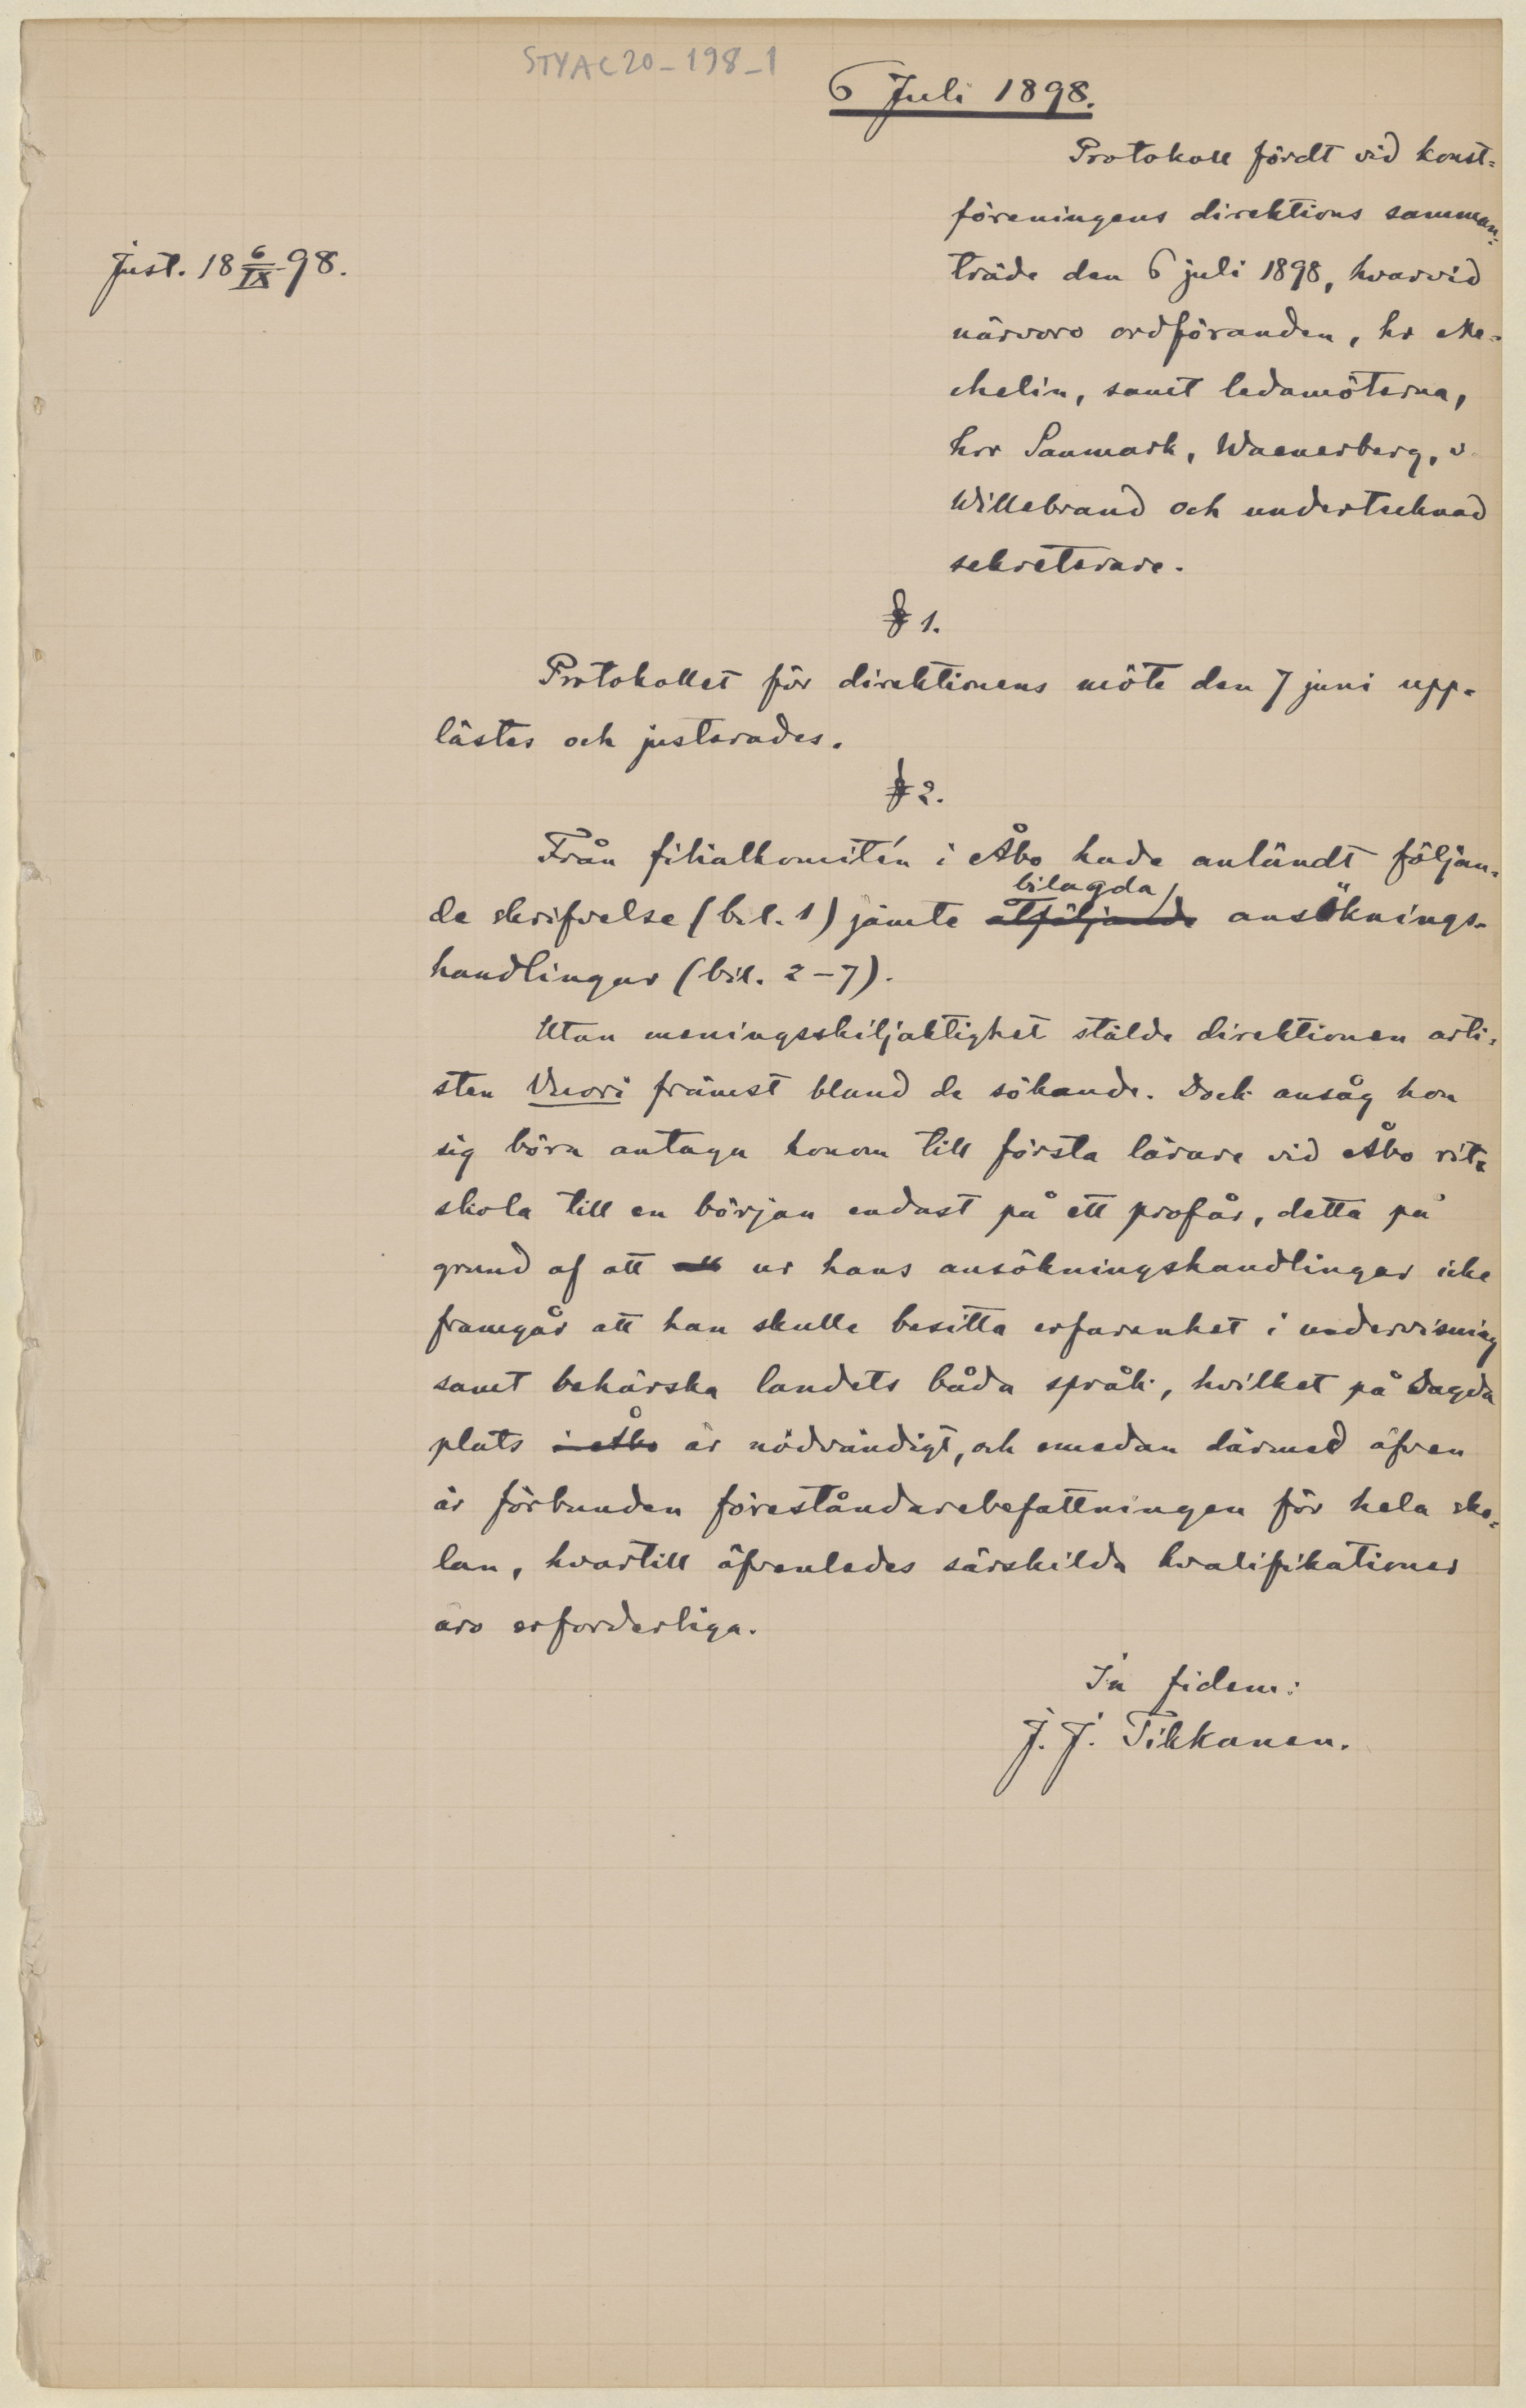 STYAC20-198-1
6 Juli 1898.
Just. 18 6/IX 98.
Protokoll fördt vid konst-
föreningens direktions samman-
träde den 6 juli 1898, hvarvid
närvoro ordföranden, hr Me-
chelin, samt ledamöterna,
hrr Sanmark, Waenerberg, v.
Willebrand och undertecknad
sekreterare.
§ 1.
Protokollet för direktionens möte den 7 juni upp-
lästes och justerades.
§ 2.
Från filialkomitén i Åbo hade anländt följan-
bilagda
de skrifvelse (bil. 1) jämte åtföljande ansöknings-
handlingar (bil. 2-7).
Utan meningsskiljaktighet stälde direktionen arti-
sten Vuori främst bland de sökande. Dock ansåg hon
sig böra antaga honom till första lärare vid Åbo rit-
skola till en början endast på ett profår, detta på
grund af att att ur hans ansökningshandlingar icke
framgår att han skulle besitta erfarenhet i undervisning
samt behärska landets båda språk, hvilket på sagda
plats i Åbo är nödvändigt, och emedan därmed äfven
är förbunden föreståndarebefattningen för hela sko-
lan, hvartill äfvenledes särskilda kvalifikationer
äro erforderliga.
In fidem:
J. J. Tikkanen.